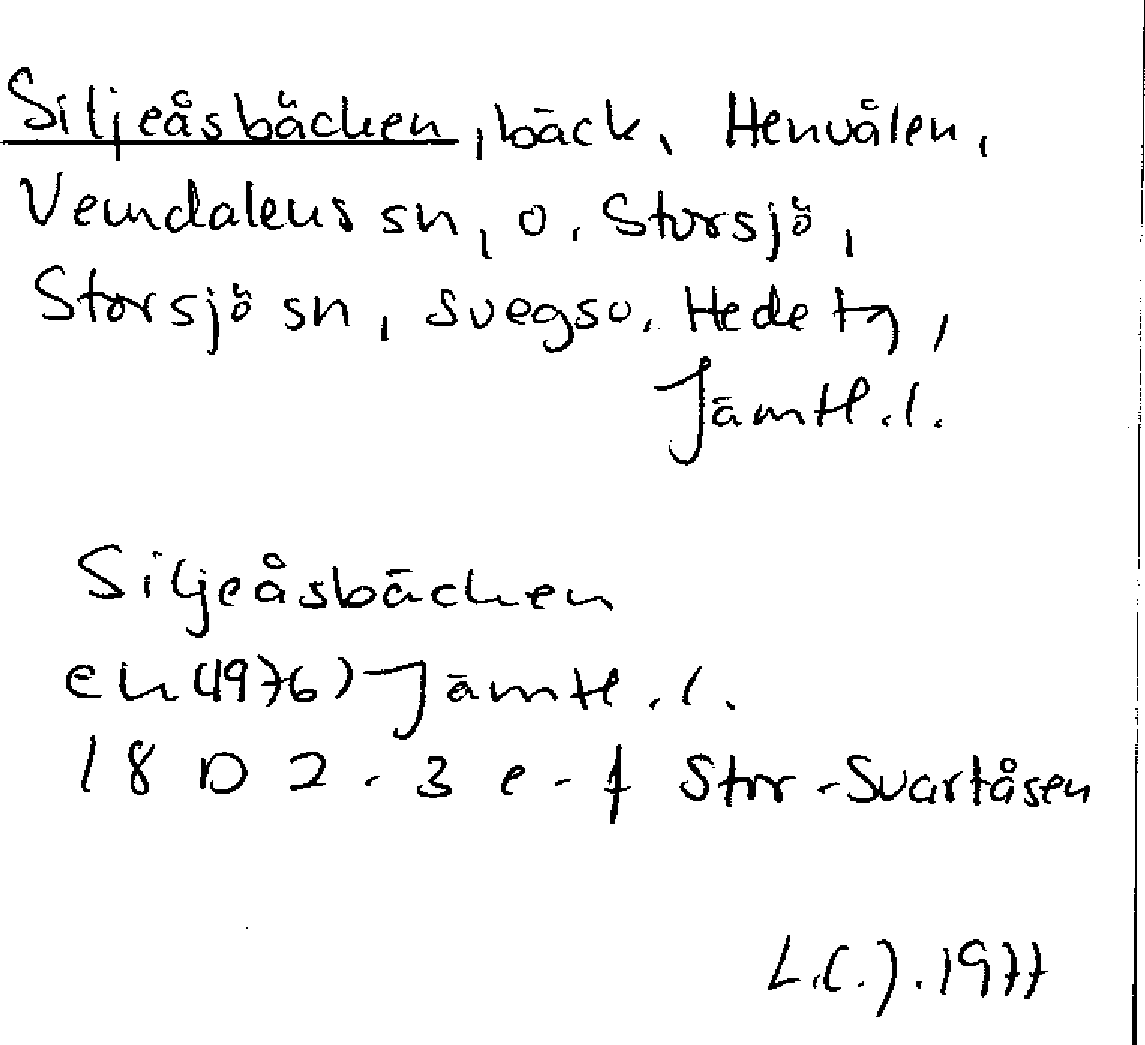 Siljeåsbäcken, bäck, Henvålen,
Vemdalens sn, o. Storsjö,
Storsjö sn, Svegs o. Hede tg,
Jämtl. l.
Siljeåsbäcken
ek (1976) Jämtl. l.
18 D 2-3 e-f Stor-Svartåsen
L.C.J. 1977